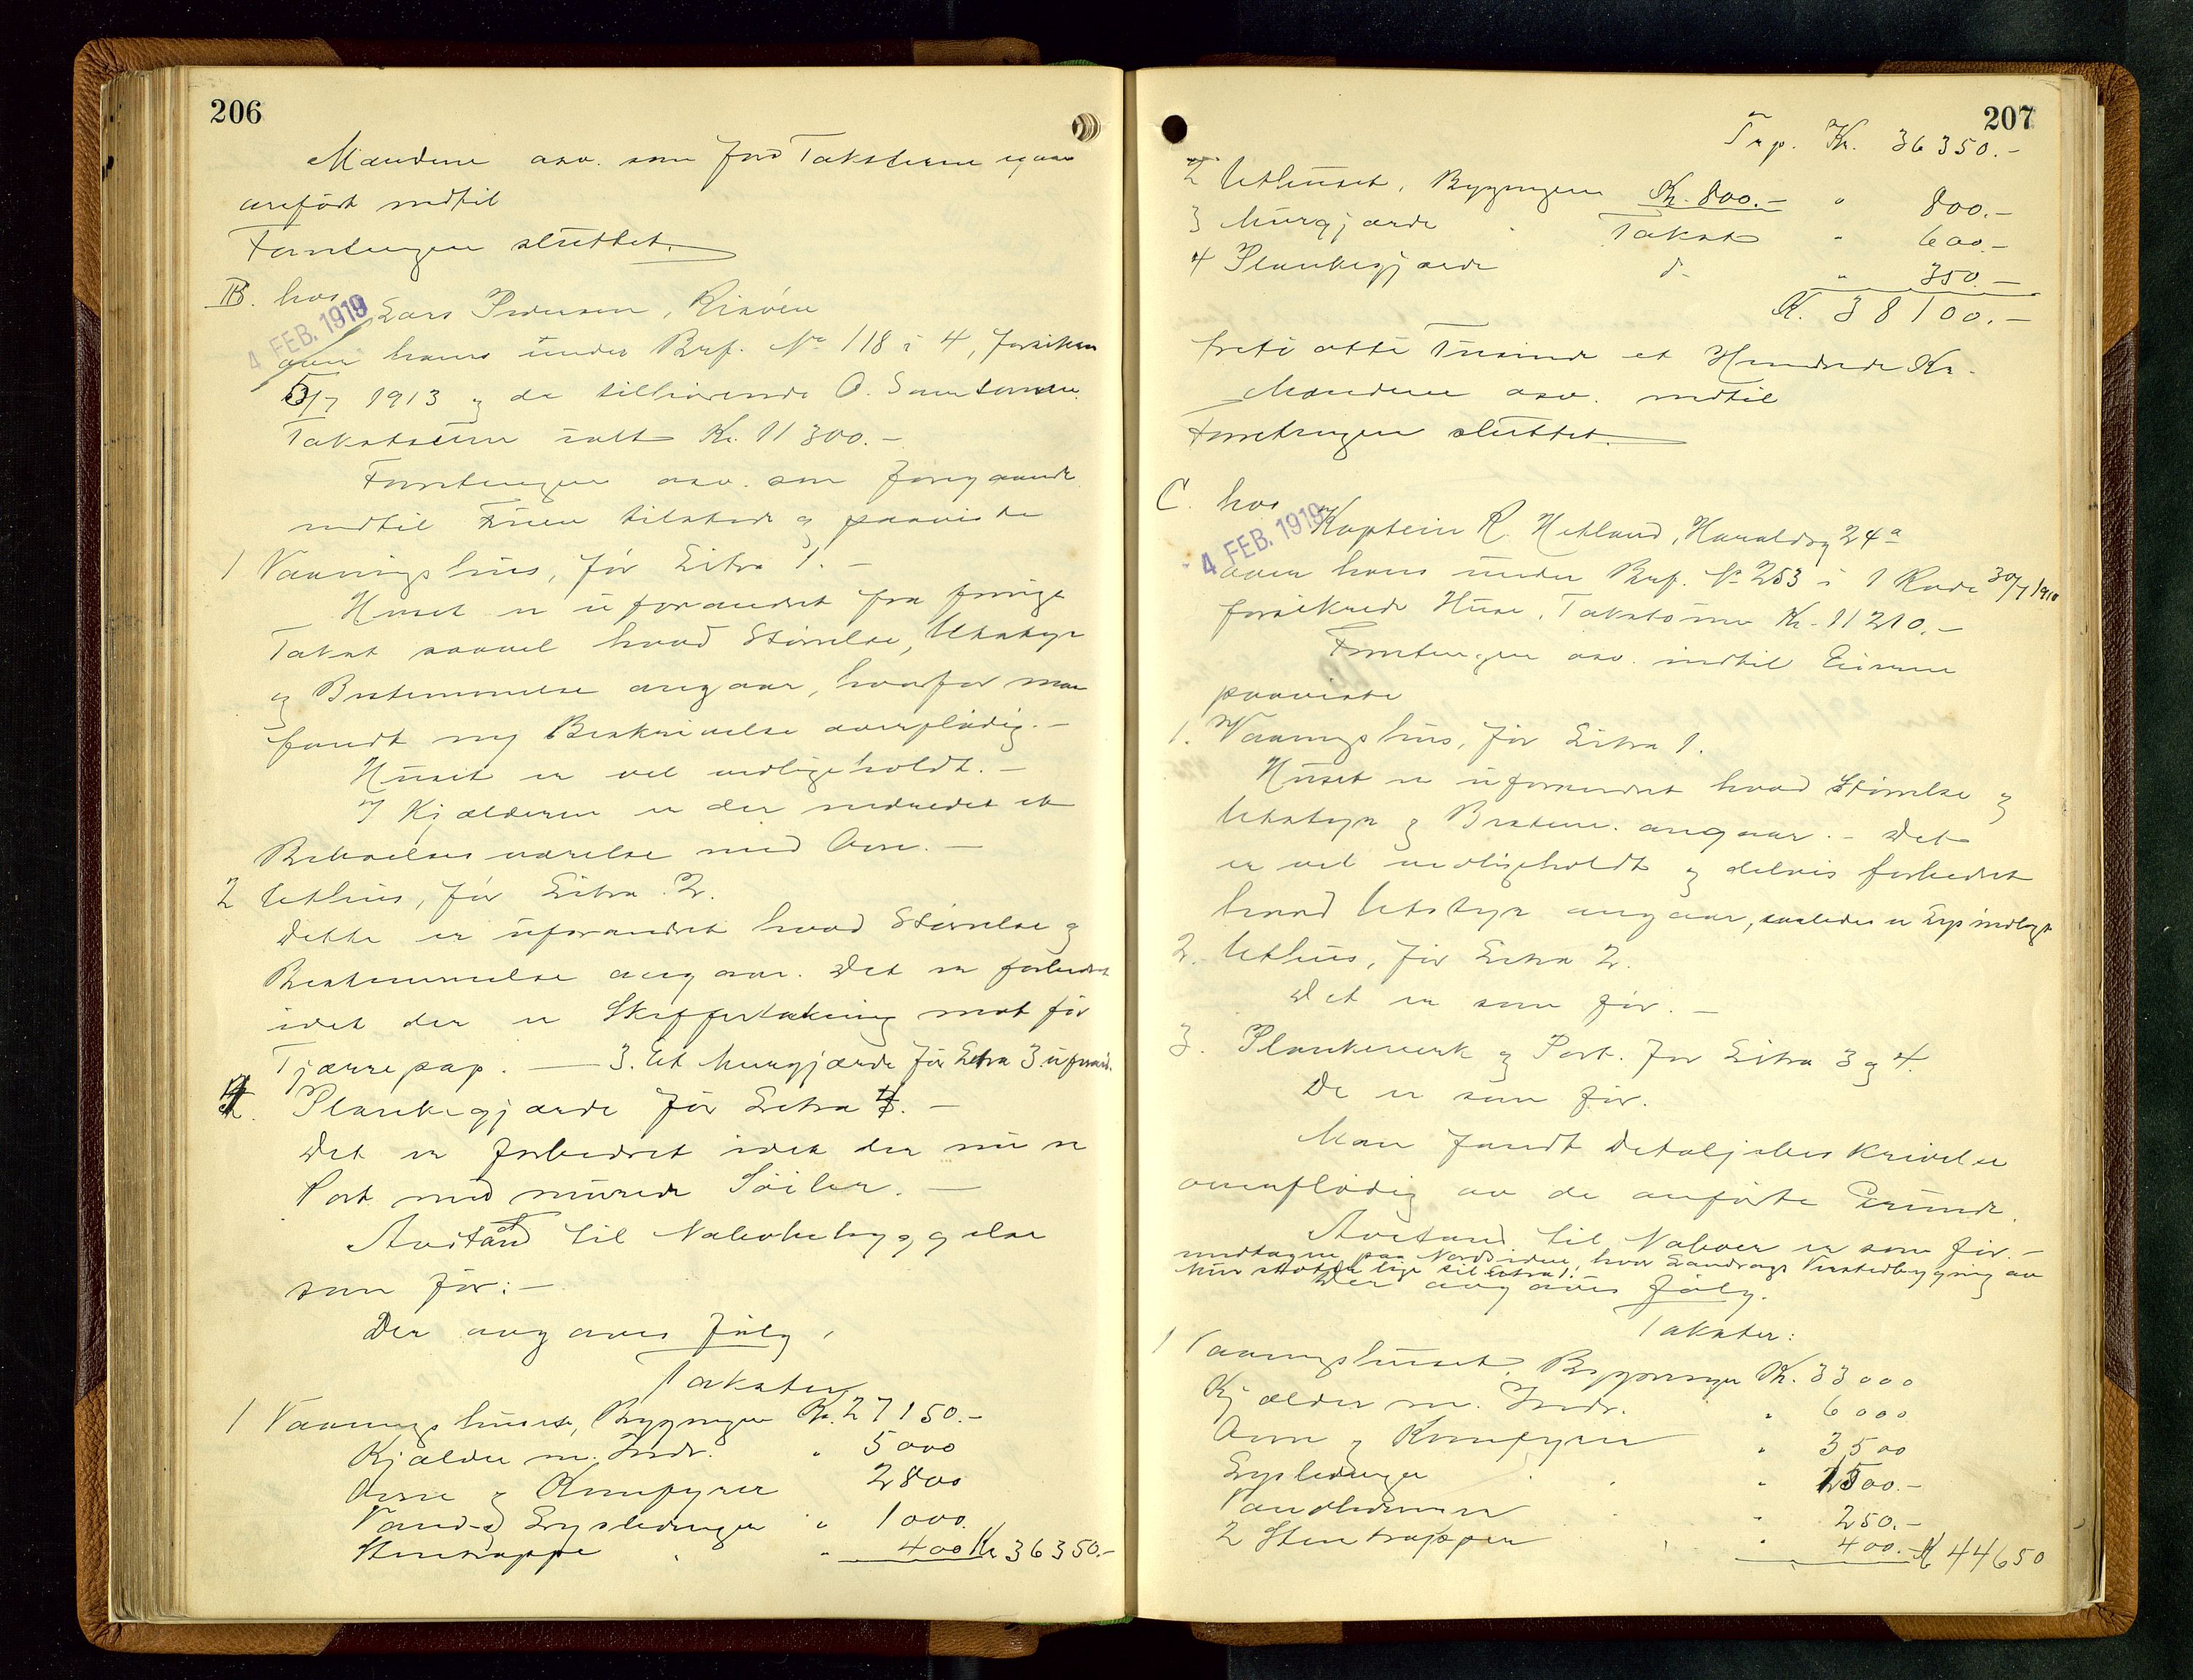 206
Mændene osv. som før Taksterne ogsaa
anført indtil
Forretningen sluttet.
B. hos
4 FEB. 1919
Lars Pedersen, Risøen
over hans under Brf. No 118 i 4, forsikr.
5/7 1913 og de tilhørende
Takstsum ialt Kr. 11 300.-
Forretningen osv. som foregaaende
indtil Fruen tilstede og paaviste
1 Vaaningshus, før Litra 1. -
Huset er uforandret fra forrige
Takst saavel hvad Størrelse, Utstyr
og Bestemmelse angaar, hvorfor man
fandt ny Beskrivelse overflødig. -
Huset er vel vedligeholdt. -
I Kjælderen er der indredet et
Beboelsesværelse med Ovn. -
2 Uthus, før Litra 2.
Dette er uforandret hvad Størrelse og
Bestemmelse angaar. Det er forbedret
idet der er Skiffertækning mot før
Tjærepap. - 3. Et Murgjærde før Litra 3. uforand.
4. Plankegjærde før Litra 4. -
Det er forbedret idet der nu er
Port med murede Søiler. -
Avstand til Nabobebyggelse
som før: -
Der avgaves følg.
Takster
1 Vaaningshuset, Bygningen Kr. 27 150.-
Kjælder m. Indr. " 5 000
Ovne og Komfyrer 2 800
Vand- og Lysledninger " 1 000.
Stentrappe " 400 Kr 36 350.-
207
Trp. Kr. 36 350.-
2 Uthuset, Bygningen Kr. 800.- " 800.-
3 Murgjærde Takst " 600.-
4 Plankegjærde d- " 350.-
K. 38 100.-
treti otte Tusinde et Hundrede Kr.
Mændene osv. indtil
Forretningen sluttet.
C. hos
4 FEB. 1919
Kaptein R. Hetland, Haraldsg 24a
over hans under Brf. No 253 i 1 Rode 30/7 1910
forsikrede Huse, Takstsum Kr. 11 210.-
Forretningen osv. indtil Eieren
paaviste
1. Vaaningshus, før Litra 1.
Huset er uforandret hvad Størrelse og
Utstyr og Bestem. angaar. - Det
er vel vedligeholdt og delvis forbedret
hvad Utstyr angaar, saaledes er Lys indlagt
2. Uthus, før Litra 2.
Det er som før. -
3. Plankeverk og Port. før Litra 3 og 4.
De er som før.
Man fandt Detaljebeskrivelse
overflødig av de anførte Grunde.
Avstand til Naboer er som før. -
undtagen paa Nordsiden, hvor Verkstedbygning av
Mur støter lige til Litra 1.
Der avgaves følg.
Takster:
1 Vaaningshuset, Bygningen K. 33 000
Kjælder m. Indr. " 6 000
Ovne og Komfyrer " 3 500
Lysledninger " 1500.-
Vandledninger " 250.-
2 Stentrapper " 400.- K 44 650